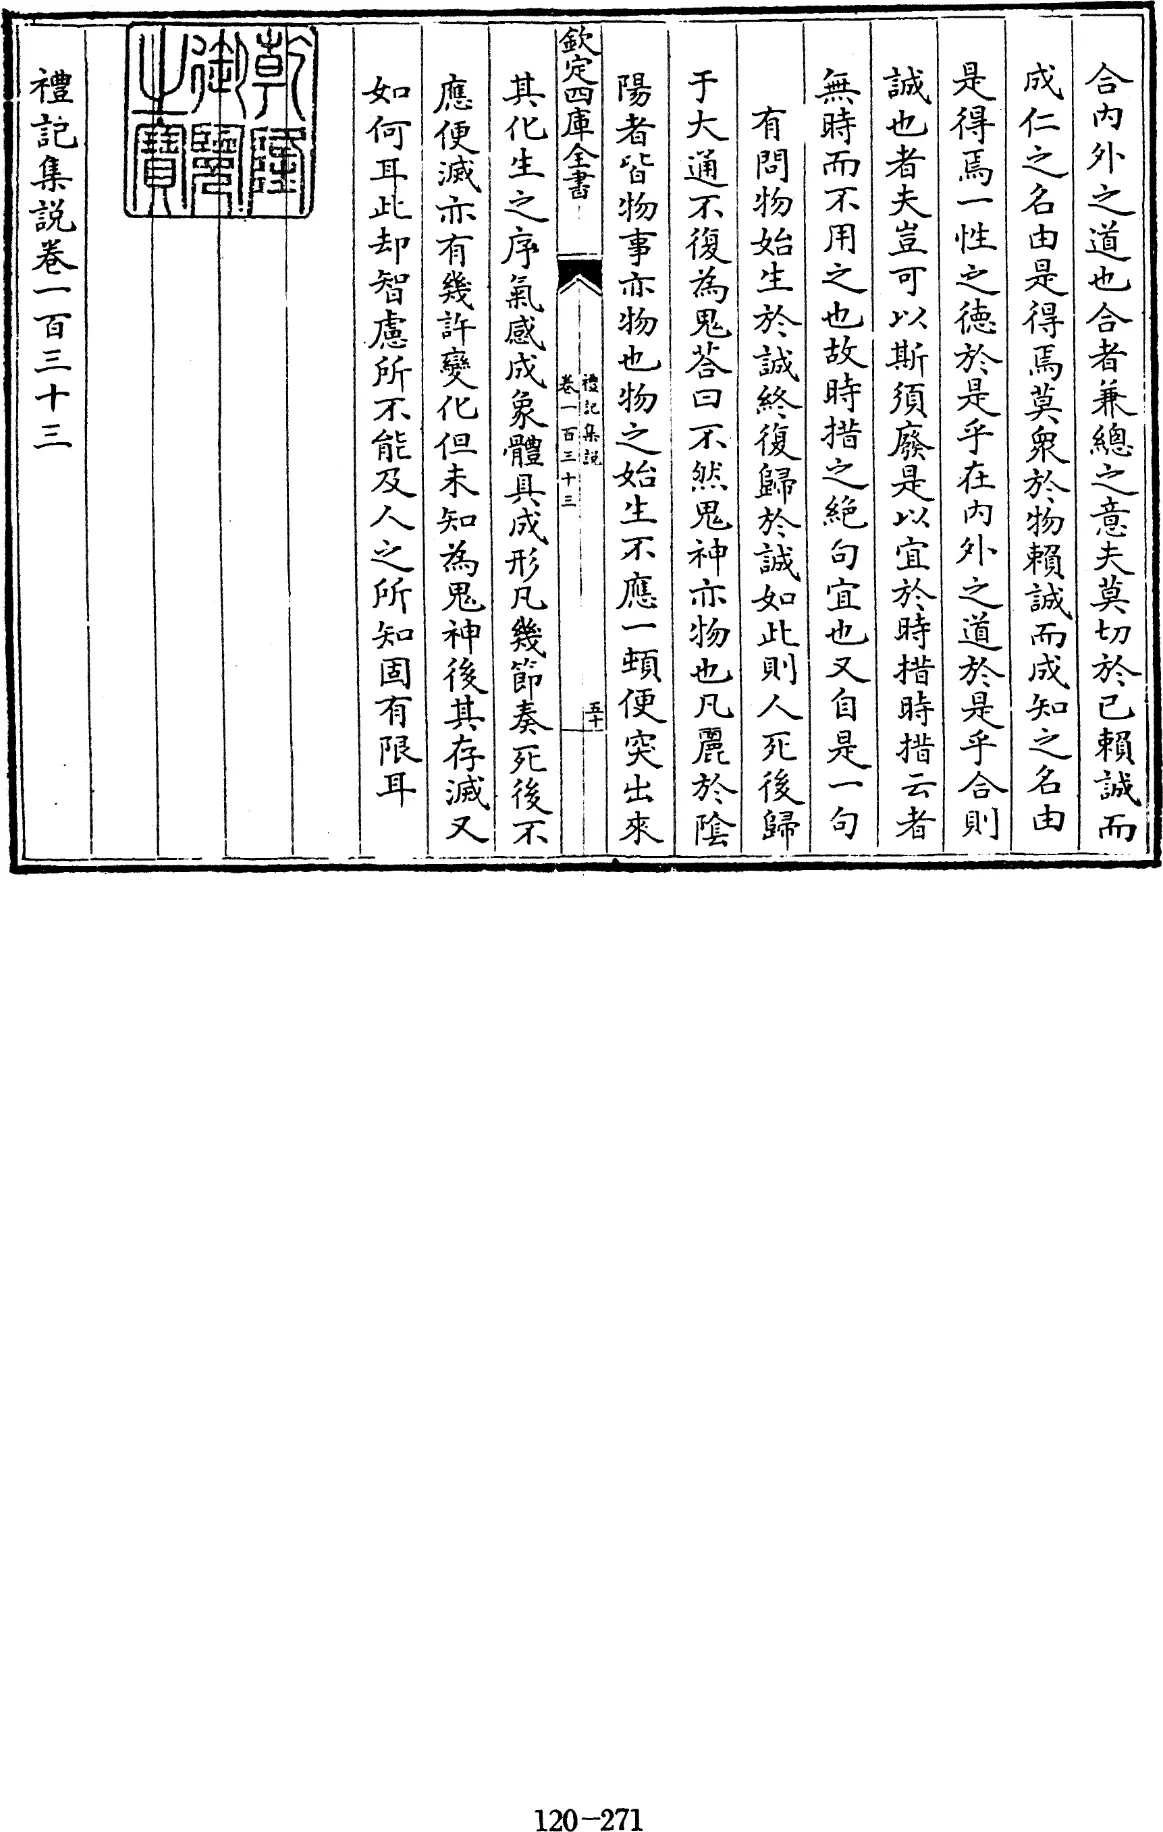 合内外之道也合者兼總之意夫莫切於已賴誠而
成仁之名由是得焉莫衆於物賴誠而成知之名由
是得焉一性之德於是乎在内外之道於是乎合則
誠也者夫豈可以斯須廢是以宜於時措時措云者
無時而不用之也故時措之絶句宜也又自是一句
有問物始生於誠終復歸於誠如此則人死後歸
于大通不復為鬼荅曰不然鬼神亦物也凡麗於隂
陽者皆物事亦物也物之始生不應一頓便突出來
欽定四庫全書
禮記集説
卷一百三十三
五十
其化生之序氣感成象體具成形凡幾節奏死後不
應便滅亦有幾許變化但未知為鬼神後其存滅又
如何耳此却智慮所不能及人之所知固有限耳
乾隆
御覽
之寶
禮記集説卷一百三十三
120-271